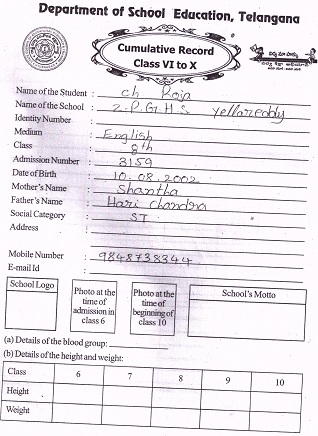 Department of School Education, Telangana
Cumulative Record
Class VI to X
Name of the Student : ch Roja
Name of the School : Z.P.G.H.S yellareddy
Identity Number :
Medium : English
Class : 8th
Admission Number : 3159
Date of Birth : 10.08.2002
Mother's Name : Shantha
Father's Name : Hari chandra
Social Category : ST
Address :
Mobile Number : 9848738344
E-mail Id :
School Logo
Photo at the time of admission in class 6
Photo at the time of beginning of class 10
School's Motto
(a) Details of the blood group:
(b) Details of the height and weight:
Class 6 7 8 9 10
Height
Weight